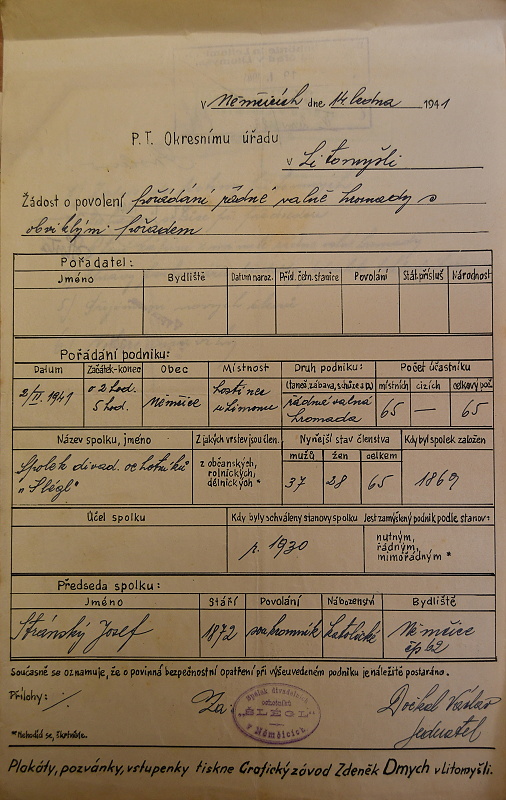 v Němčicích dne 14 ledna 1941
P.T. Okresnímu úřadu
v Litomyšli
Žádost o povolení pořádání řádné valné hromady s
obviklým pořadem
Pořadatel:
Jméno Bydliště Datum naroz. Přísl. četn. stanice Povolání Stát. přísluš Národnost
Pořádání podniku:
Datum Začátek-konec Obec Místnost Druh podniku: (taneč. zábava, schůze a p.) Počet účastníků
místních cizích celkový poč.
2/II. 1941 o 2 hod. 5 hod. Němčice hostinec u Limonu řádné valná hromada 65 — 65
Název spolku, jméno Z jakých vrstev jsou člen. Nynější stav členstva Kdy byl spolek založen
mužů žen celkem
Spolek divad. ochotníků „Šlégl" z občanských, rolnických, dělnických * 37 28 65 1869
Účel spolku Kdy byly schváleny stanovy spolku Jest zamýšlený podnik podle stanov:
r. 1930 nutným, řádným, mimořádným *
Předseda spolku:
Jméno Stáří Povolání Náboženství Bydliště
Stránský Josef 1872 katolické Němčice čp 62
Současně se oznamuje, že o povinná bezpečnostní opatření při výšeuvedeném podniku je náležitě postaráno.
Přílohy: /.
Za:
Spolek divadelních ochotníků
"ŠLÉGL"
v Němčicích
Václav
Jednatel
* Nehodící se, škrtněte.
Plakáty, pozvánky, vstupenky tiskne Grafický závod Zdeněk Dmych v Litomyšli.